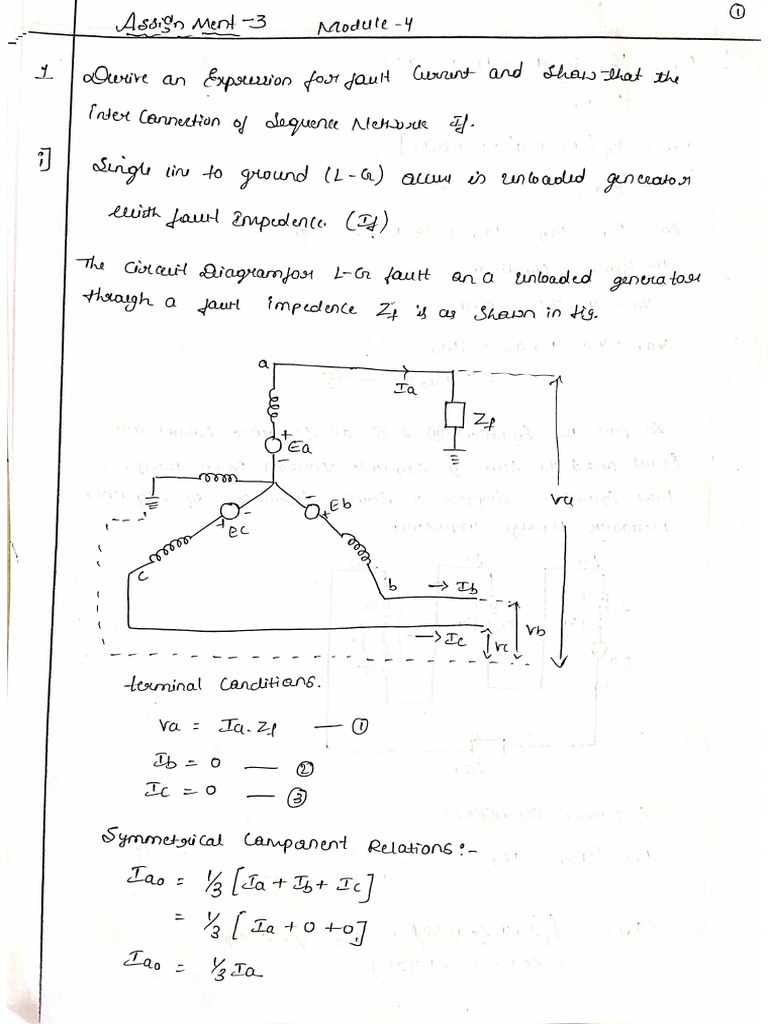 ①
Assignment -3 Module -4
1 Derive an Expression for fault Current and show that the
inter Connection of Sequence Network If.
i] Single line to ground (L-G) occur is unloaded generator
with fault impedence. (If)
The circuit Diagram for L-G fault on a unloaded generator
through a fault impedence Zf is as shown in fig.
a
Ia
Zf
+
Ea
-
-
+ Eb
-
+ Ec
Va
c
b → Ib
→ Ic
Vc
Vb
terminal Conditions.
Va = Ia. Zf — ①
Ib = 0 — ②
Ic = 0 — ③
Symmetrical Component Relations :-
Iao = 1/3 [Ia + Ib + Ic]
= 1/3 [Ia + 0 + 0]
Iao = 1/3 Ia